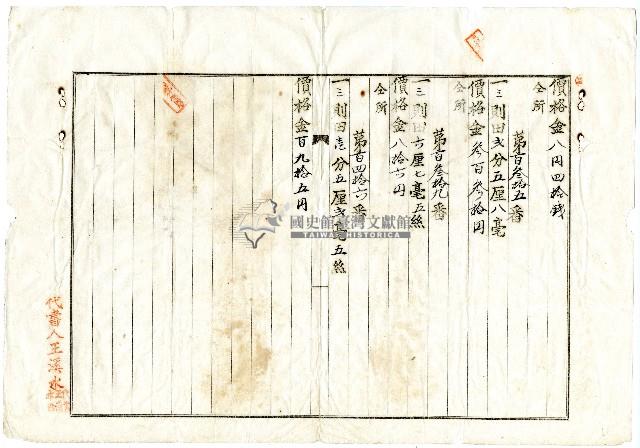 價格金八円四拾錢
仝所
第百叁拾五番
一三則田弐分五厘八毫
價格金叁百叁拾円
仝所
第百叁拾九番
一三則田六厘七毫五絲
價格金八拾六円
仝所
第百四拾六番
一三則田壱分五厘弐毫五絲
價格金百九拾五円
代書人王溪水
國史館臺灣文獻館
TAIWAN HISTORICA